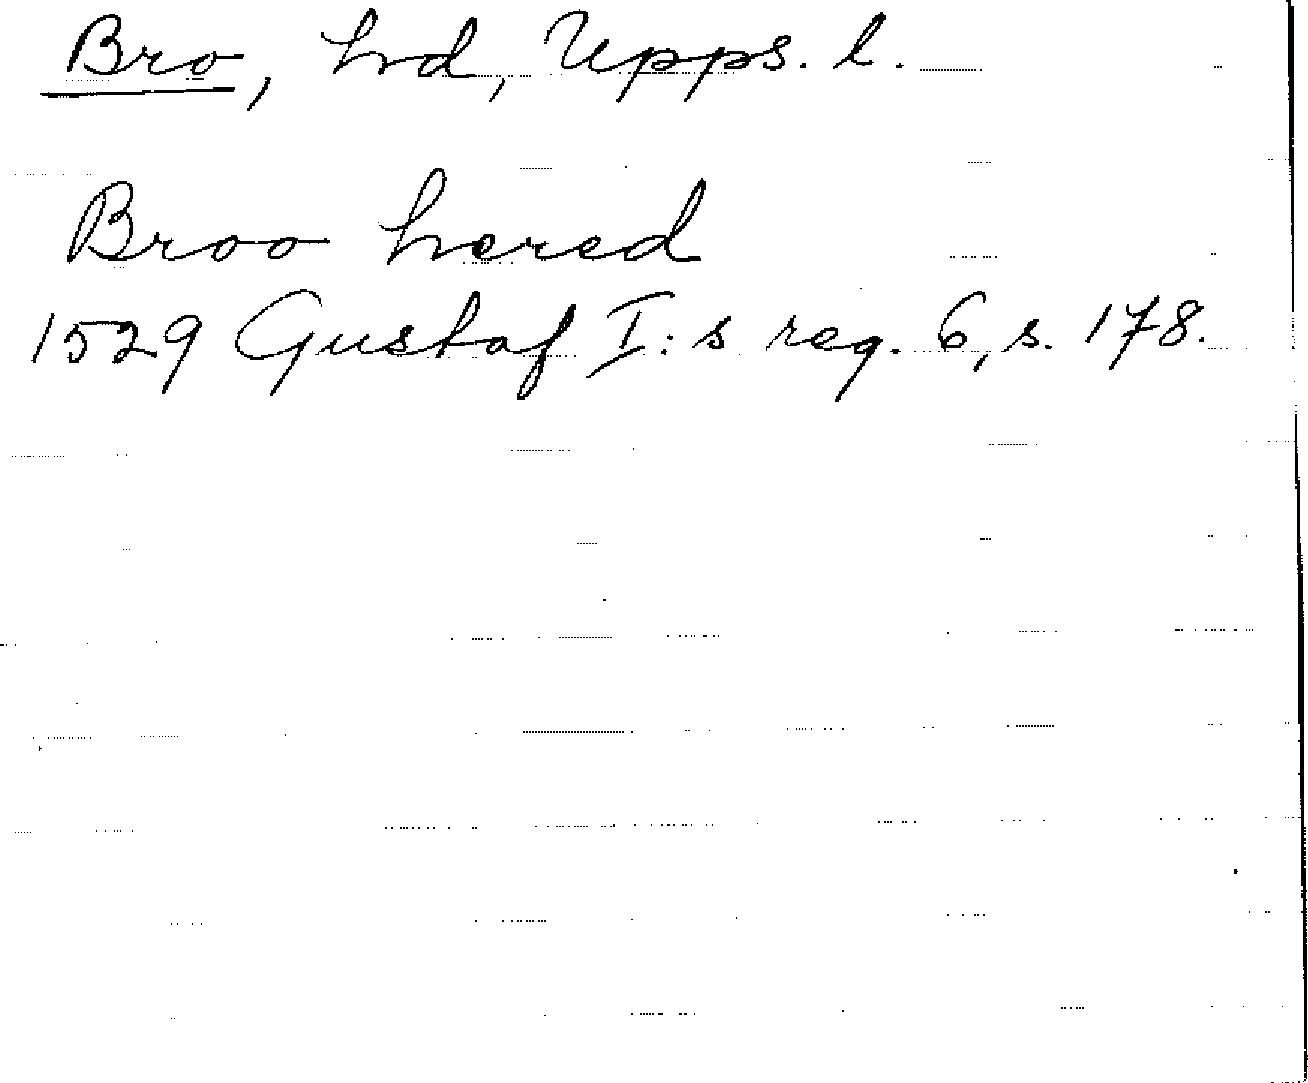 Bro, hrd, Upps. l.
Broo hered
1529 Gustaf I:s reg. 6, s. 178.